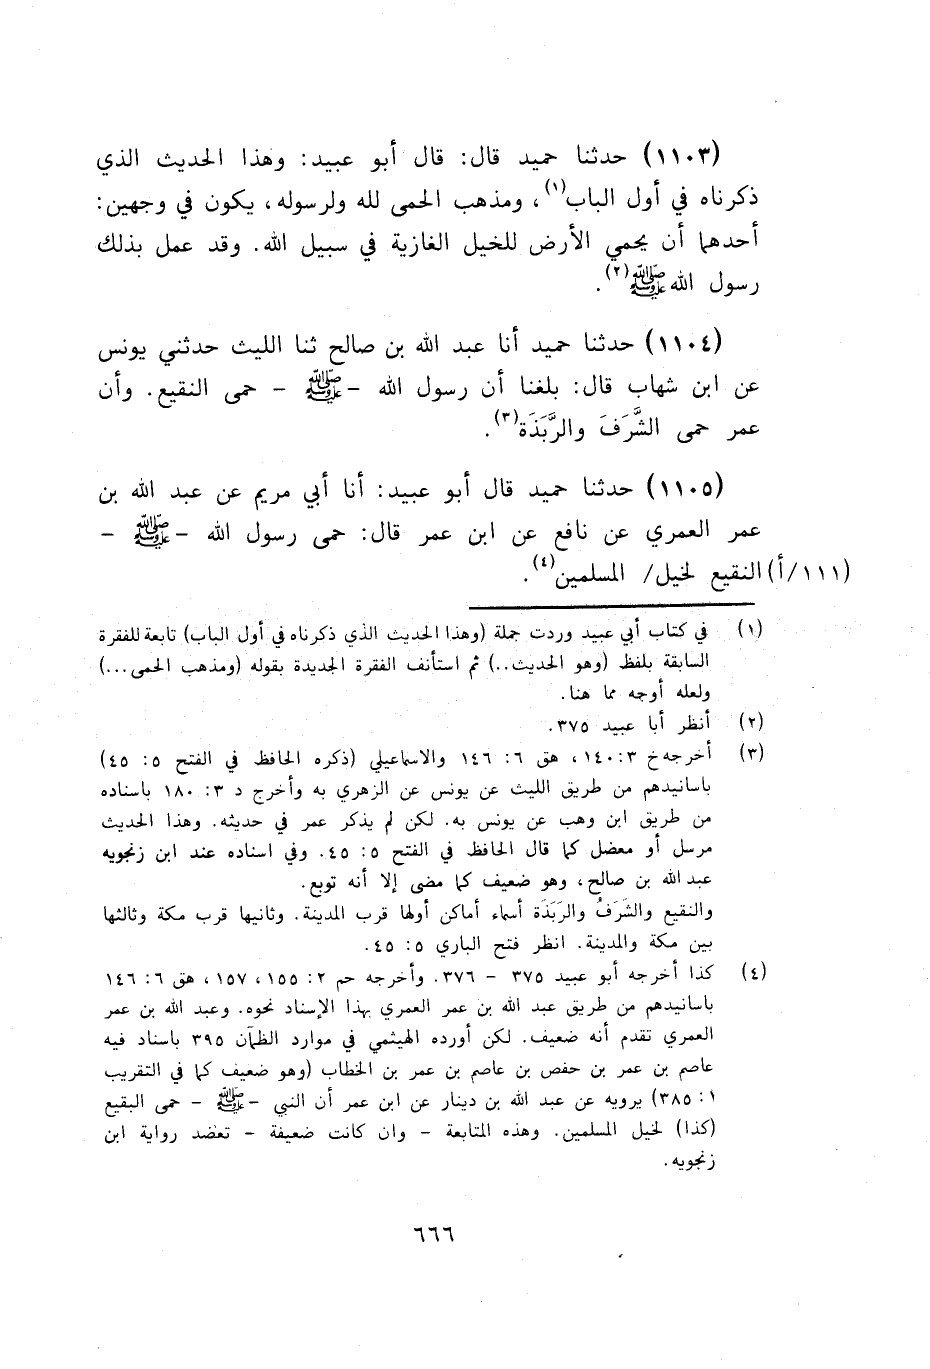 (١١٠٣) حدثنا حميد قال: قال أبو عبيد: وهذا الحديث الذي
ذكرناه في أول الباب(١)، ومذهب الحمى لله ولرسوله، يكون في وجهين:
أحدهما أن يحمي الأرض للخيل الغازية في سبيل الله. وقد عمل بذلك
رسول الله ﷺ(٢).
(١١٠٤) حدثنا حميد أنا عبد الله بن صالح ثنا الليث حدثني يونس
عن ابن شهاب قال: بلغنا أن رسول الله - ﷺ - حمى النقيع. وأن
عمر حمى الشَّرَفَ والرَّبَذَة(٣).
(١١٠٥) حدثنا حميد قال أبو عبيد: أنا أبي مريم عن عبد الله بن
عمر العمري عن نافع عن ابن عمر قال: حمى رسول الله - ﷺ -
(١١١/أ) النقيع لخيل/ المسلمين(٤).
(١) في كتاب أبي عبيد وردت جملة (وهذا الحديث الذي ذكرناه في أول الباب) تابعة للفقرة
السابقة بلفظ (وهو الحديث..) ثم استأنف الفقرة الجديدة بقوله (ومذهب الحمى...)
ولعله أوجه مما هنا.
(٢) أنظر أبا عبيد ٣٧٥.
(٣) أخرجه خ ٣: ١٤٠، هق ٦: ١٤٦ والاسماعيلي (ذكره الحافظ في الفتح ٥: ٤٥)
باسانيدهم من طريق الليث عن يونس عن الزهري به وأخرج د ٣: ١٨٠ باسناده
من طريق ابن وهب عن يونس به. لكن لم يذكر عمر في حديثه. وهذا الحديث
مرسل أو معضل كما قال الحافظ في الفتح ٥: ٤٥. وفي اسناده عند ابن زنجويه
عبد الله بن صالح، وهو ضعيف كما مضى إلا أنه توبع.
والنقيع والشَرَفُ والرَبَذَة أسماء أماكن أولها قرب المدينة. وثانيها قرب مكة وثالثها
بين مكة والمدينة. انظر فتح الباري ٥: ٤٥.
(٤) كذا أخرجه أبو عبيد ٣٧٥ - ٣٧٦. وأخرجه حم ٢: ١٥٥، ١٥٧، هق ٦: ١٤٦
باسانيدهم من طريق عبد الله بن عمر العمري بهذا الإسناد نحوه. وعبد الله بن عمر
العمري تقدم أنه ضعيف. لكن أورده الهيثمي في موارد الظمآن ٣٩٥ باسناد فيه
عاصم بن عمر بن حفص بن عاصم بن عمر بن الخطاب (وهو ضعيف كما في التقريب
١: ٣٨٥) يرويه عن عبد الله بن دينار عن ابن عمر أن النبي - ﷺ - حمى البقيع
(كذا) لخيل المسلمين. وهذه المتابعة - وان كانت ضعيفة - تعضد رواية ابن
زنجويه.
٦٦٦